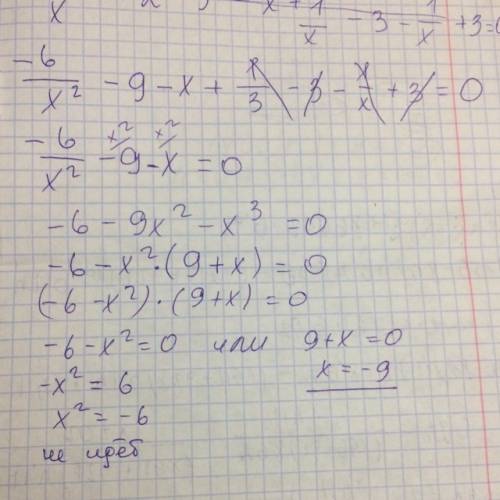 x + 1/x - 3 - 1/x + 3 = 0
-6/x² - 9 - x + 1/3 - 3 - 1/x + 3 = 0
-6/x² - 9 - x = 0
x² x²
-6 - 9x² - x³ = 0
-6 - x² · (9 + x) = 0
(-6 - x²) · (9 + x) = 0
-6 - x² = 0 или 9 + x = 0
-x² = 6 x = -9
x² = -6
не идёт